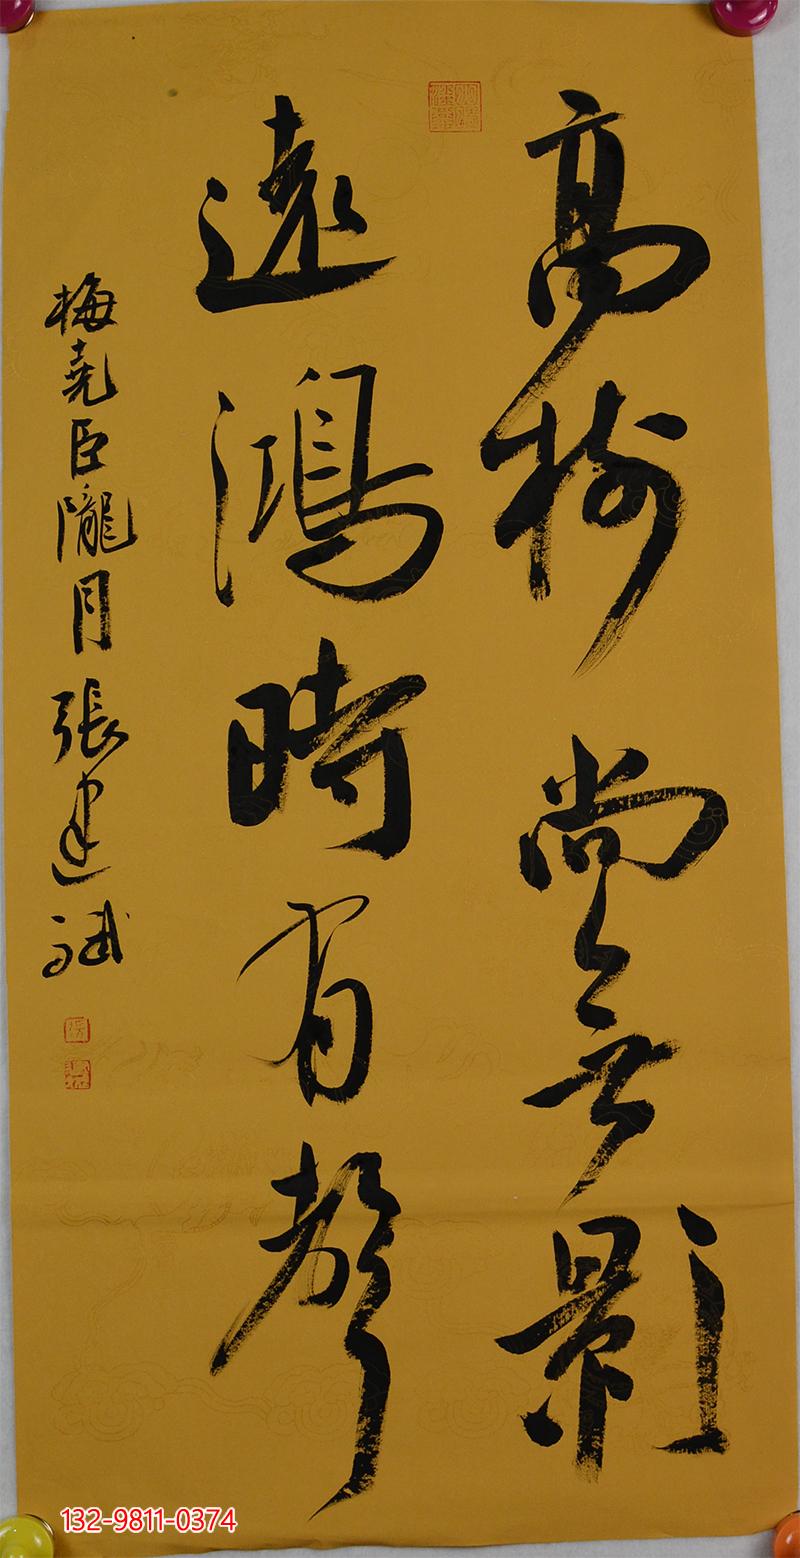 高樹尚無影
遠鴻時有聲
梅堯臣隴月 張建斌
132-9811-0374